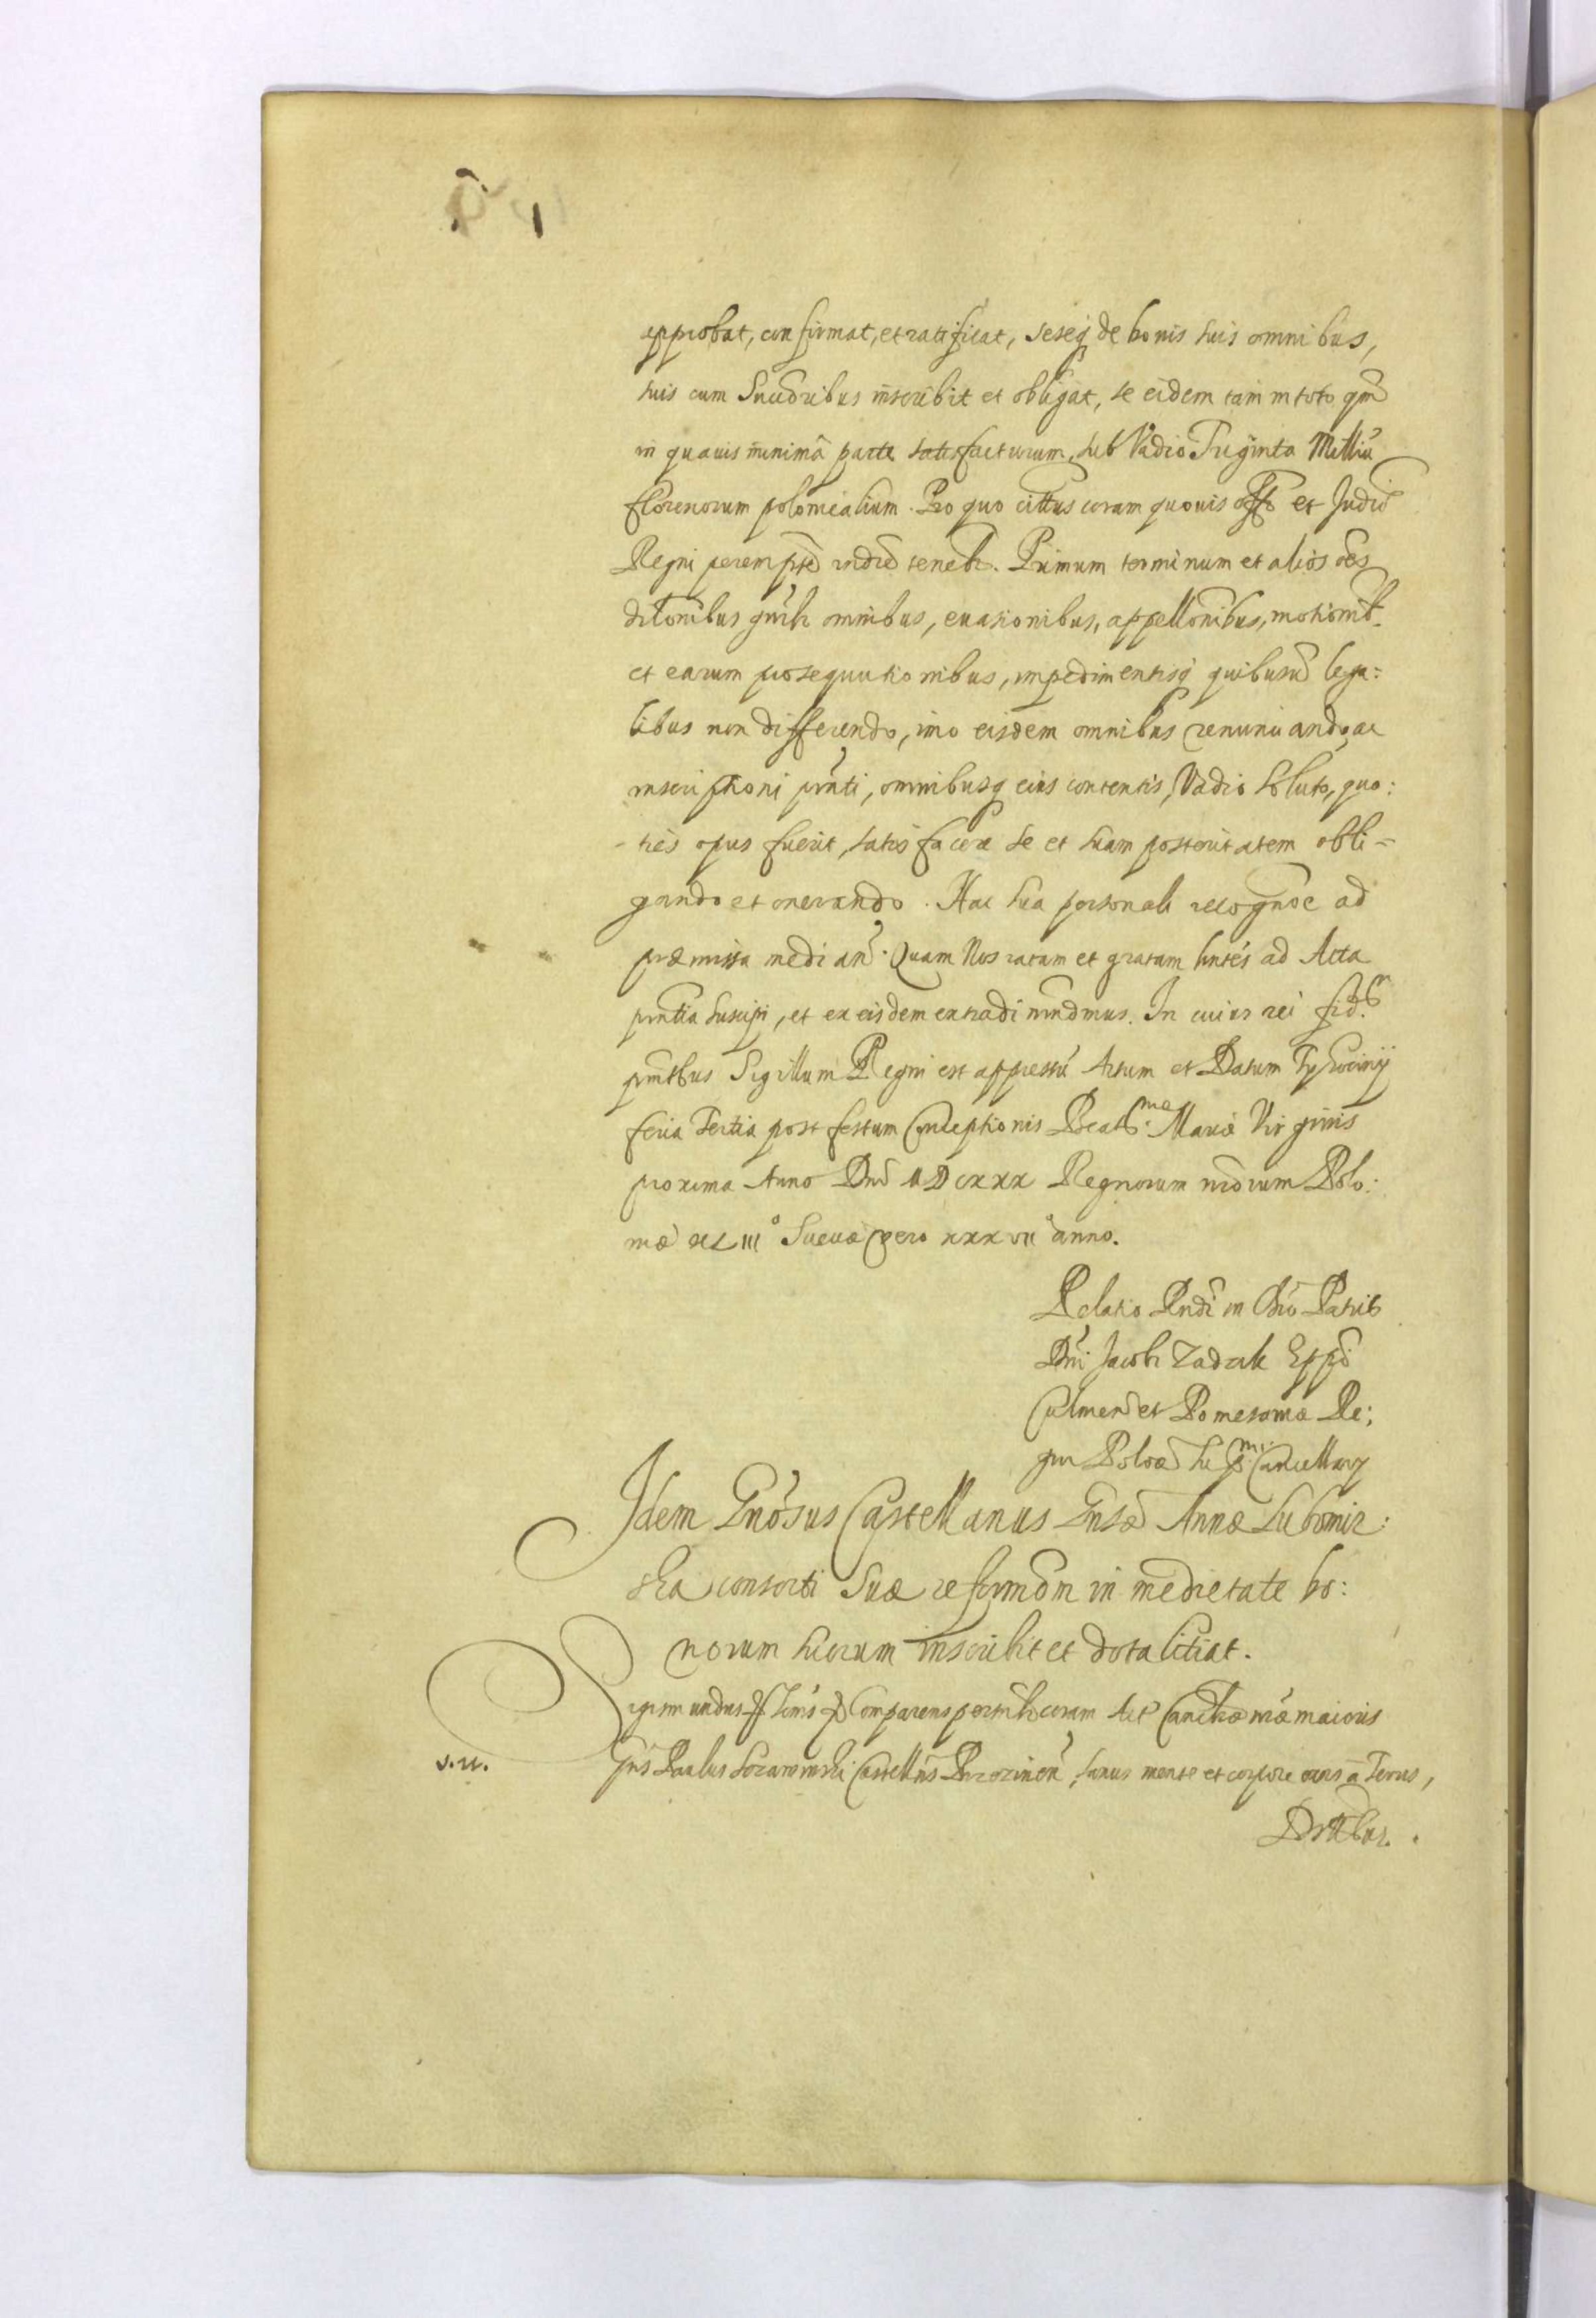 approbat, confirmat, et ratificat, seseq̃ de bonis suis omnibus,
suis cum Succedribus inscribit et obligat, se eidem tam in toto qm̃
in quavis minima parte satisfacturum, sub Vadio Triginta Milliũ
florenorum polonicalium. Pro quo cittus coram quovis offo et Judio
Regni perempte indre tenebr. Primum terminum et alios oẽs
dilonibus gnrlr omnibus, evasionibus, appellonibus, motionib.
et earum prosequutionibus, impedimentisq̃ quibusuis lega:
libus non differendo, imo eisdem omnibus renunciando, ac
inscriptioni prnti, omnibusq̃ eius contentis, Vadio soluto, quo:
-ties opus fuerit, satisfacere se et suam posteritatem obli=
gando et onerando. Hac sua personali recognõe ad
præmissa mediañ. Quam Nos ratam et gratam hntes ad Acta
prntia suscipi, et ex eisdem extradi mndmus. In cuius rei fid.
prntibus Sigillum Regni est appressũ. Actum et Datum Tykocinij
feria Tertia post festum Conceptionis Beatiss:mæ Mariæ Virginis
proxima Anno Dni MDCXXX Regnorum nrorum Polo:
niæ XLIIIº Sueciæ vero XXXVII anno.
Relatio Rndi in Chro Patris
Dni Jacobi Zadzik Eppi
Culmen et Pomesaniæ Re:
gni Poloæ Sup:mi Cancellarij
Idem Gnosus Castellanus Gnsæ Annæ Lubomir:
ska consorti Suæ reformõm in medietate bo:
norum suorum inscribit et dotalitiat.
Sigismundus IIItius &c Comparens personlr coram Act Cancllriæ nræ maioris
s. n.
Gns Paulus Castellns sanus mente et corpore exns ac Terris,